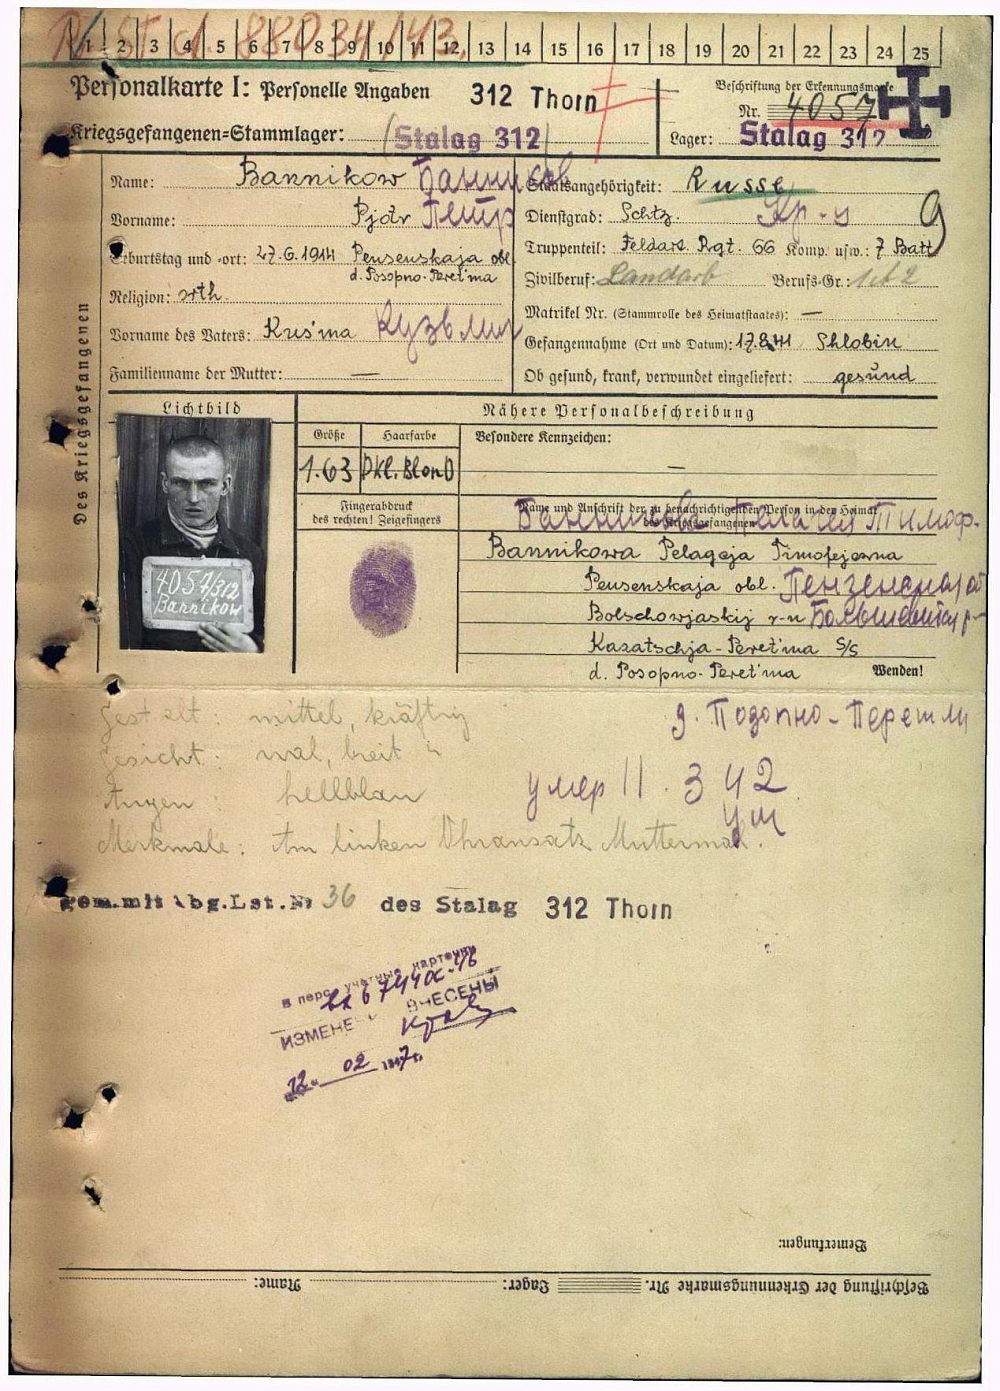 R. St. d. 88034/143.
1 2 3 4 5 6 7 8 9 10 11 12 13 14 15 16 17 18 19 20 21 22 23 24 25
Personalkarte I: Personelle Angaben 312 Thorn
Beschriftung der Erkennungsmarke
Nr. 4057
Kriegsgefangenen-Stammlager: (Stalag 312)
Lager: Stalag 312
Des Kriegsgefangenen
Name: Bannikow Банников
Vorname: Pjotr Петр
Geburtstag und -ort: 27.6.1914 Pensenskaja obl
d. Posopno-Peret'ma
Religion: orth.
Vorname des Vaters: Kus'ma Кузьмич
Familienname der Mutter: —
Staatsangehörigkeit: Russe
Dienstgrad: Schtz. Кр-ц 9
Truppenteil: Feldart. Rgt. 66 Komp. usw.: 7 Batt
Zivilberuf: Landarb Berufs-Gr.:
Matrikel Nr. (Stammrolle des Heimatstaates): —
Gefangennahme (Ort und Datum): 17.8.41 Shlobin
Ob gesund, krank, verwundet eingeliefert: gesund
Lichtbild
Nähere Personalbeschreibung
Größe Haarfarbe
1.63 Dkl. Blond
Besondere Kennzeichen:
—
Fingerabdruck
des rechten! Zeigefingers
4057/312
Bannikow
Name und Anschrift der zu benachrichtigenden Person in der Heimat
des Kriegsgefangenen
Банникова Пелагея Тимоф.
Bannikowa Pelageja Timofejewna
Pensenskaja obl. Пензенская об
Bolschowjaskij r-n
Kasatschja-Peret'ma S/S
d. Posopno-Peret'ma Wenden!
д. Позопно-Перетьми
Gestalt: mittel, kräftig
Gesicht: oval, breit
Augen: hellblau
Merkmale: Am linken Ohransatz Muttermal.
умер 11. 3 42
gem. mit Abg.Lst.Nr 36 des Stalag 312 Thorn
В перс. учетные карточки
ИЗМЕНЕНИЯ ВНЕСЕНЫ
12. 02 1947г.
Bemerkungen:
Beschriftung der Erkennungsmarke Nr. Lager: Name: